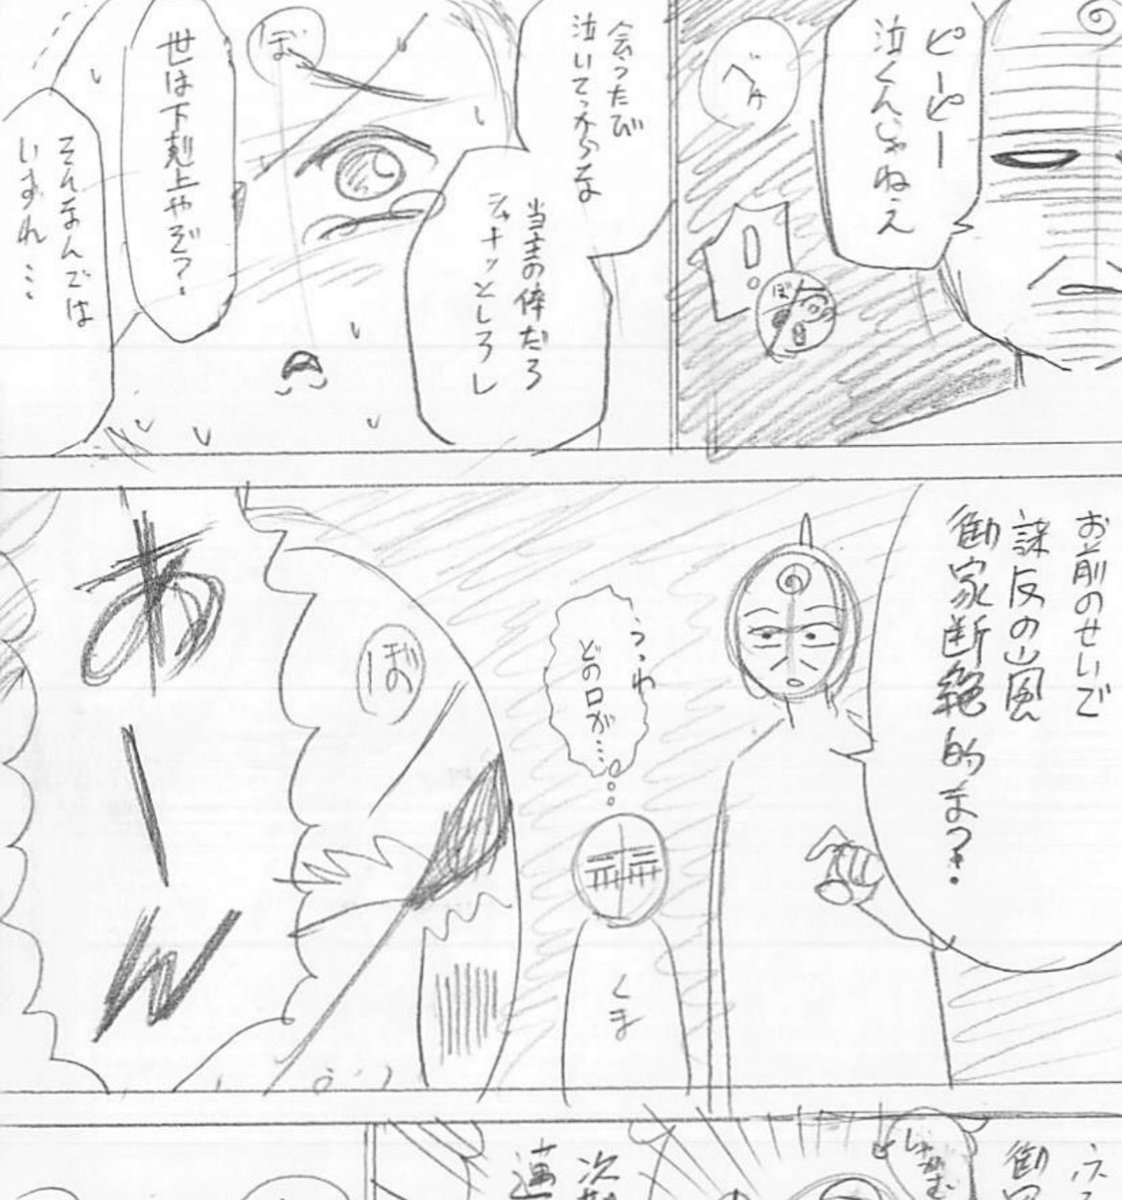 ピーピー
泣くんじゃねえ
べ
！
ぼ
会ったび
泣いてっからな
当主の倅だろ
シャナッとしろし
ぼ
世は下剋上やぞ？
そんなんでは
いずれ…
お前のせいで
謀反の嵐
御家断絶的な？
うわ
どの口が…
くま
ぼ
わーん
御
次